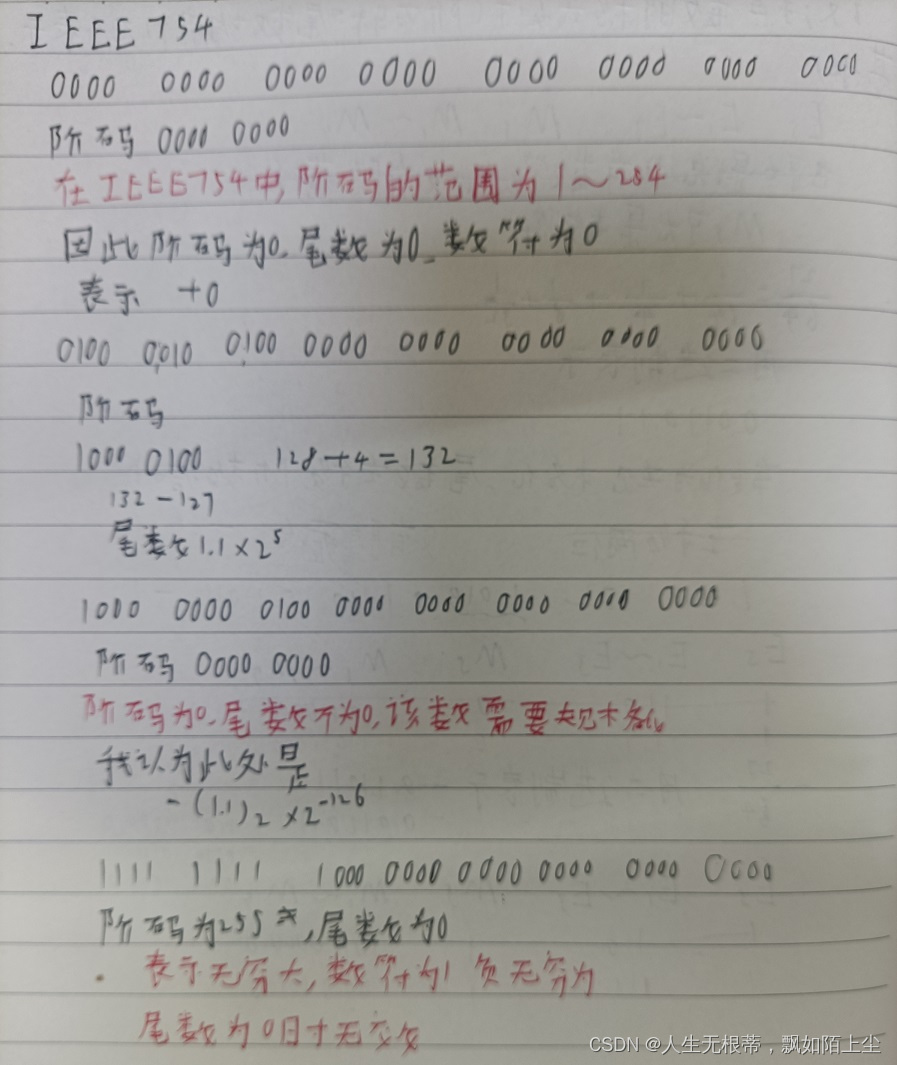 IEEE754
0000 0000 0000 0000 0000 0000 0000 0000
阶码 0000 0000
在IEEE754中,阶码的范围为1~254
因此阶码为0.尾数为0.数符为0
表示 +0
0100 0010 0100 0000 0000 0000 0000 0000
阶码
1000 0100 128+4=132
132-127
尾数1.1×2⁵
1000 0000 0100 0000 0000 0000 0000 0000
阶码 0000 0000
阶码为0.尾数不为0,该数需要规格化
我认为此处是
-(1.1)₂×2⁻¹²⁶
1111 1111 1000 0000 0000 0000 0000 0000
阶码为255,尾数为0
. 表示无穷大,数符为1 负无穷
尾数为0时无
CSDN @人生无根蒂,飘如陌上尘